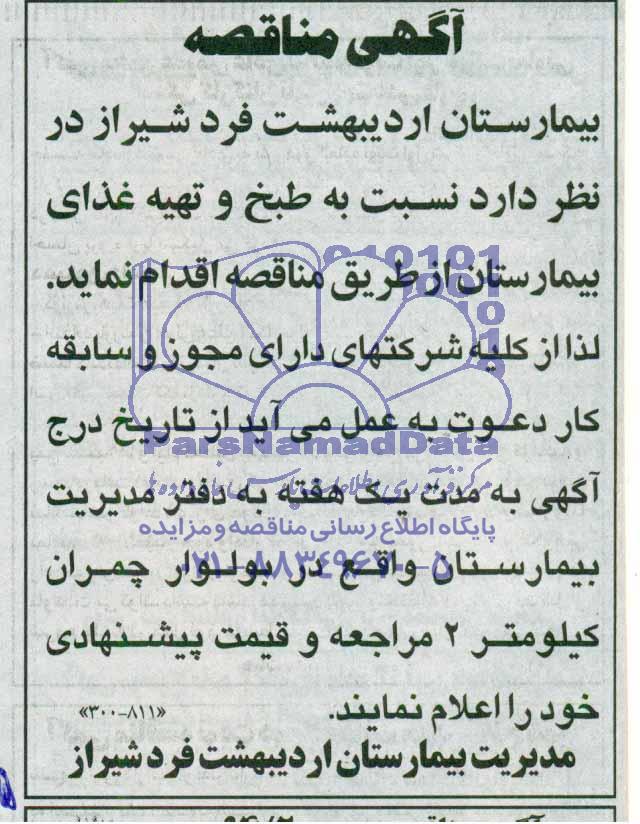 آگهی مناقصه
بیمارستان اردیبهشت فرد شیراز در
نظر دارد نسبت به طبخ و تهیه غذای
بیمارستان از طریق مناقصه اقدام نماید.
لذا از کلیه شرکتهای دارای مجوز و سابقه
کار دعوت به عمل می آید از تاریخ درج
ParsNamadData
آگهی به مدت یک هفته به دفتر مدیریت
پایگاه اطلاع رسانی مناقصه و مزایده
بیمارستان واقع در بولوار چمران
۰۲۱-۸۸۳۴۹۶۷۰-۵
کیلومتر ۲ مراجعه و قیمت پیشنهادی
خود را اعلام نمایند.
«۳۰۰-۸۱۱»
مدیریت بیمارستان اردیبهشت فرد شیراز